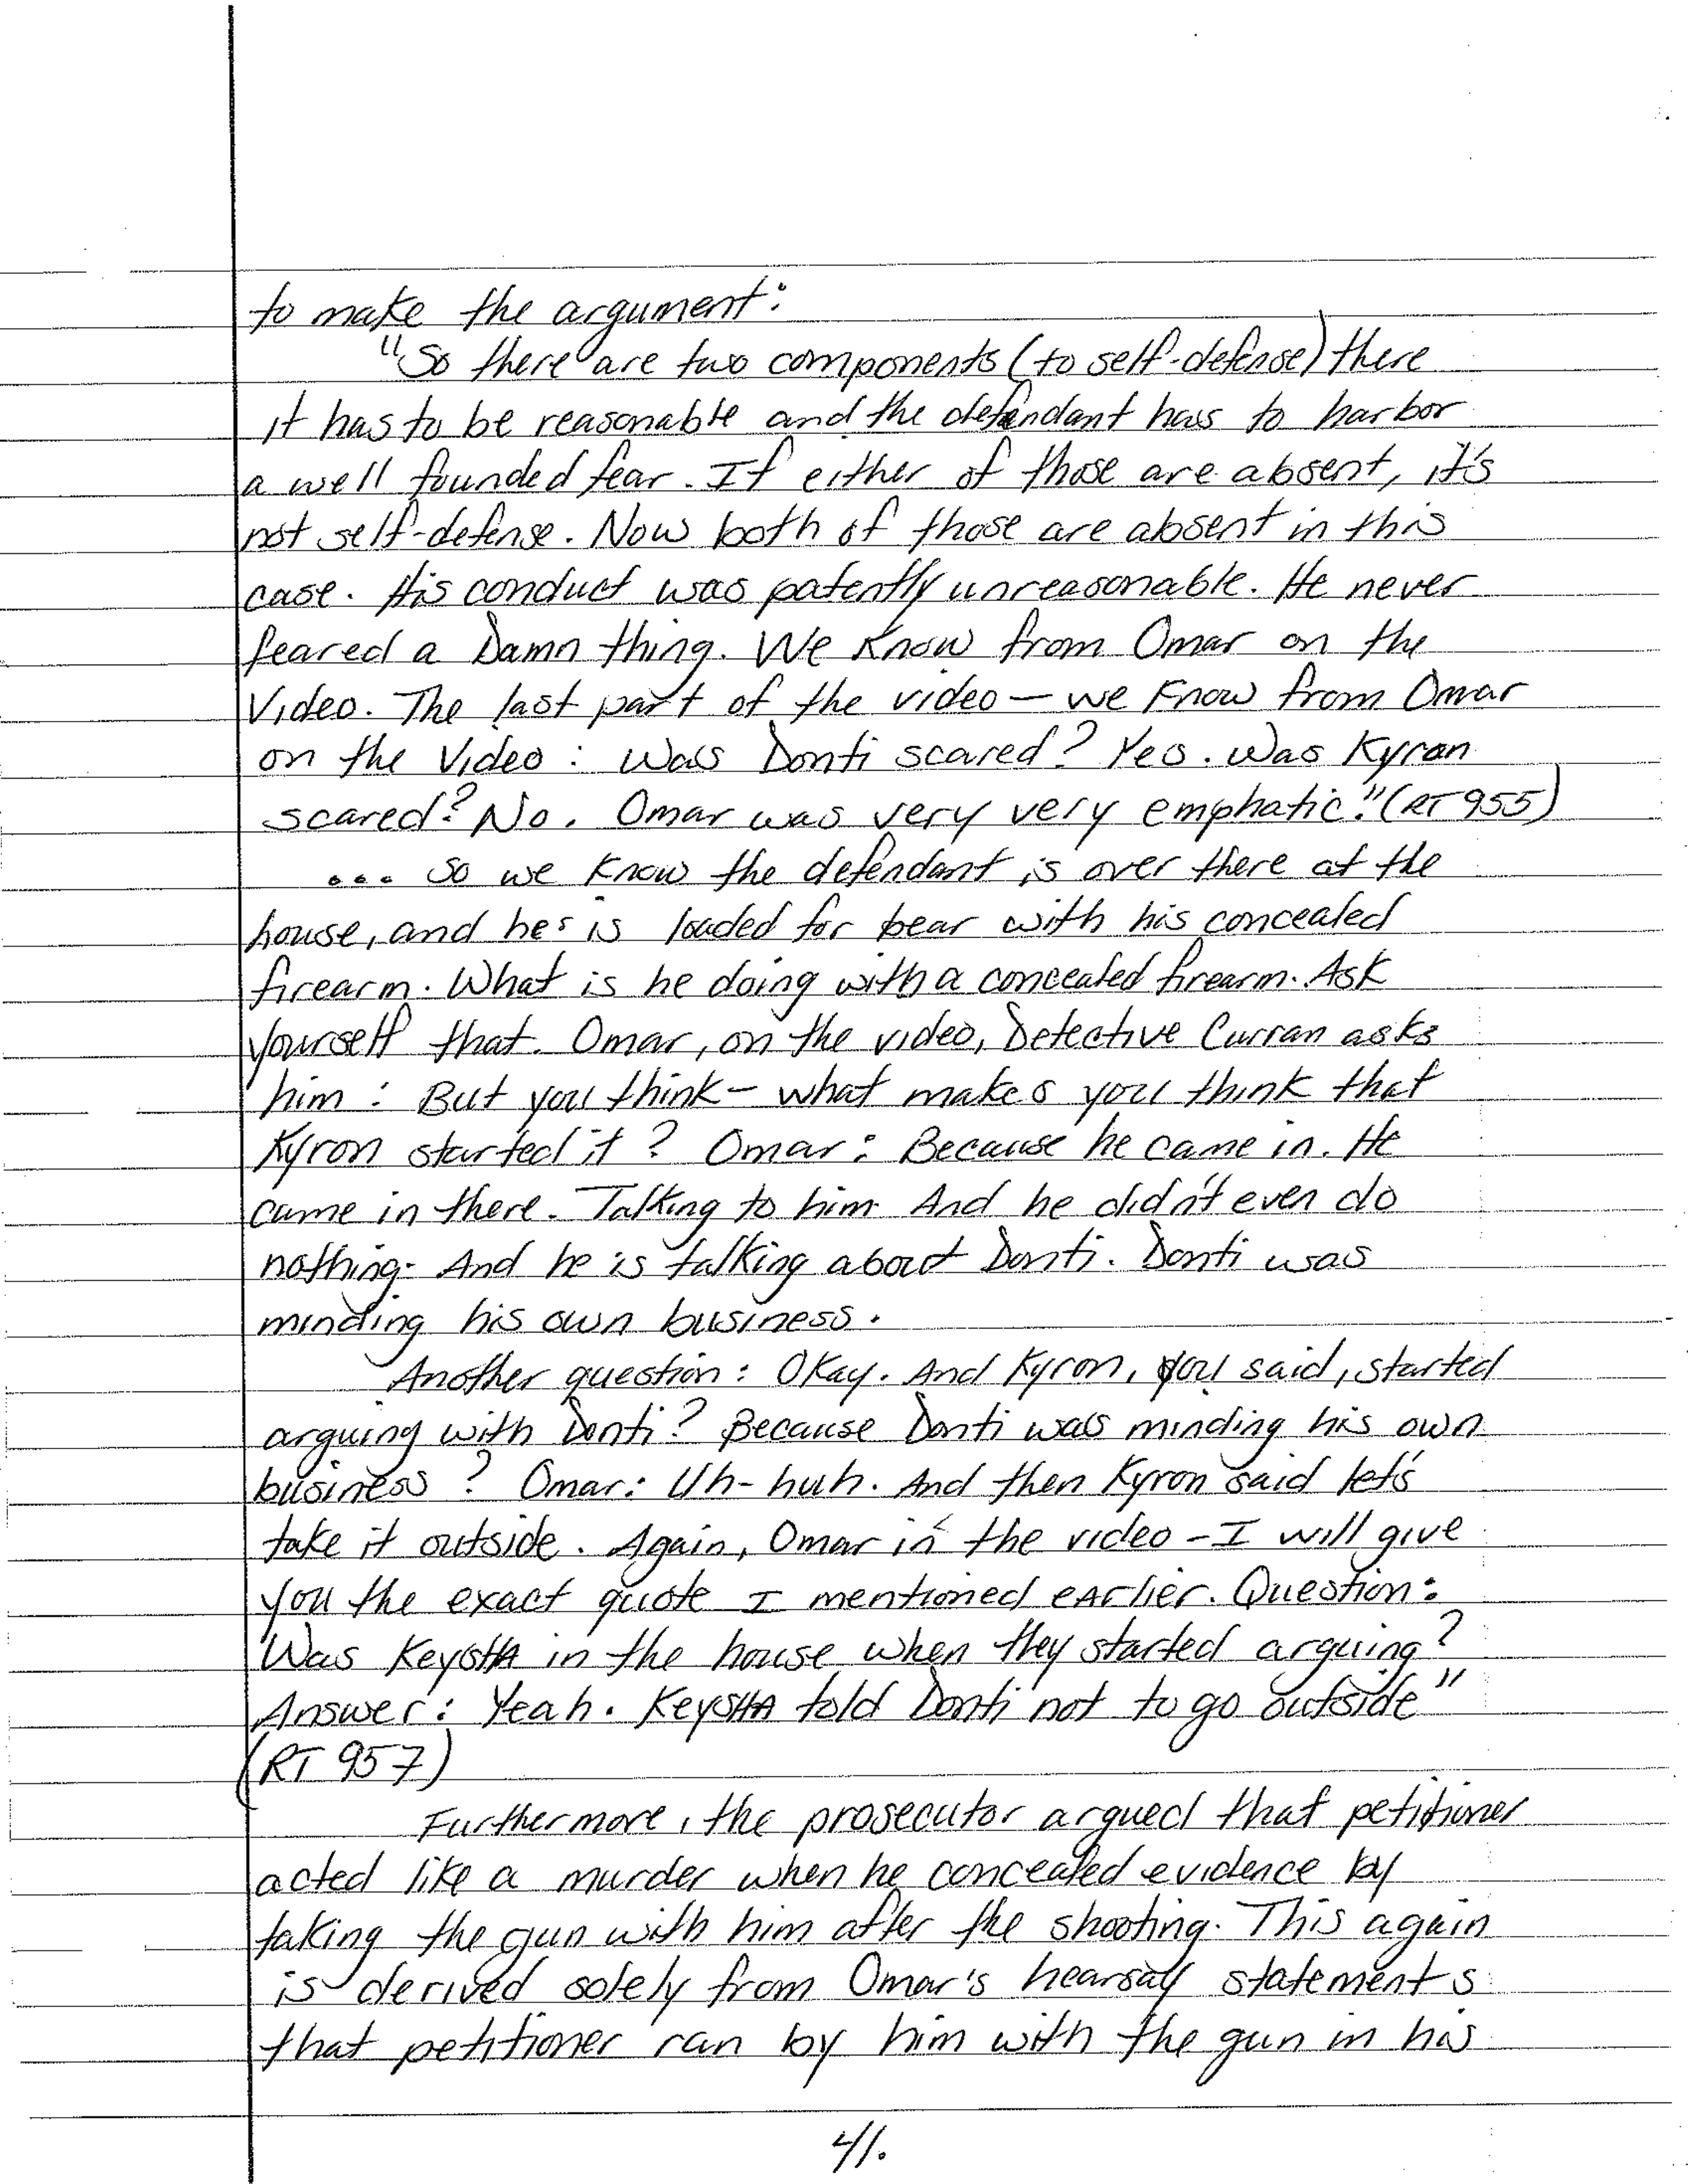 to make the argument:
"So there are two components (to self-defense) there
it has to be reasonable and the defendant has to harbor
a well founded fear. If either of those are absent, it's
not self-defense. Now both of those are absent in this
case. His conduct was patently unreasonable. He never
feared a Damn thing. We Know from Omar on the
Video. The last part of the video - we Know from Omar
on the Video: Was Donti scared? Yes. Was Kyron
scared? No. Omar was very very emphatic." (RT 955)
... So we Know the defendant is over there at the
house, and he's is loaded for bear with his concealed
firearm. What is he doing with a concealed firearm. Ask
yourself that. Omar, on the video, Detective Curran asks
him: But you think - what makes you think that
Kyron started it? Omar: Because he came in. He
came in there. Talking to him. And he didn't even do
nothing. And he is talking about Donti. Donti was
minding his own business.
Another question: Okay. And Kyron, you said, started
arguing with Donti? Because Donti was minding his own
business? Omar: Uh-huh. And then Kyron said let's
take it outside. Again, Omar in the video - I will give
you the exact quote I mentioned earlier. Question:
Was KeysHA in the house when they started arguing?
Answer: Yeah. KeysHA told Donti not to go outside"
(RT 957)
Furthermore, the prosecutor argued that petitioner
acted like a murder when he concealed evidence by
taking the gun with him after the shooting. This again
is derived solely from Omar's hearsay statements
that petitioner ran by him with the gun in his
41.